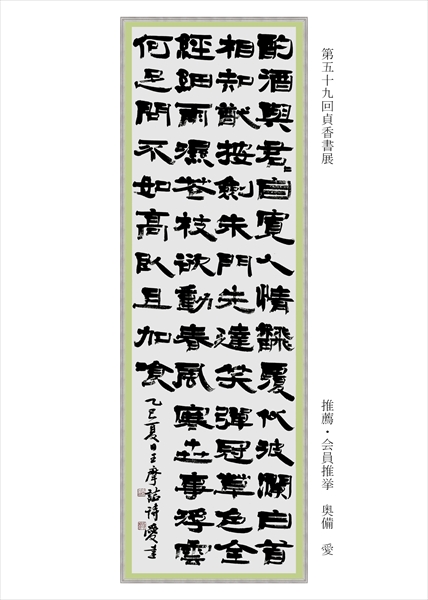 第五十九回貞香書展
推薦・会員推挙　奥備　愛
酌酒與君〻自寛人情飜覆似波瀾白首
相知猷按劍朱門先達笑彈冠草色全
經細雨濕花枝欲動春風寒世事浮雲
何足問不如高臥且加飡
乙巳夏日王摩詰詩愛書